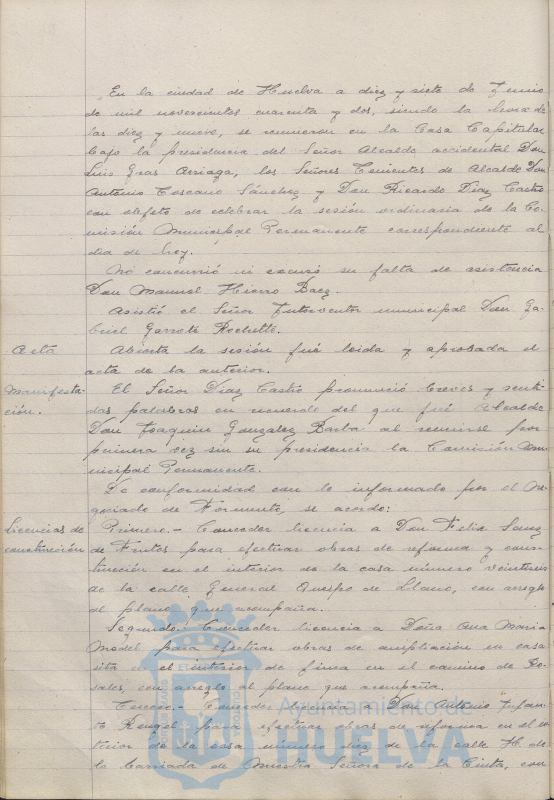 En la ciudad de Huelva a diez y siete de Junio
de mil novecientos cuarenta y dos, siendo la hora de
las diez y nueve, se reunieron en la Casa Capitular
bajo la presidencia del Señor Alcalde accidental Don
Luis Gras Arriaga, los Señores Tenientes de Alcalde Don
Antonio Toscano Sánchez y Don Ricardo Díaz Castro
con objeto de celebrar la sesión ordinaria de la Co-
misión Municipal Permanente correspondiente al
día de hoy.
No concurrió ni excusó su falta de asistencia
Don Manuel Hierro Baez.
Asistió el Señor Interventor municipal Don Ga-
briel Garrote Rochette.
Acta
Abierta la sesión fué leida y aprobada el
acta de la anterior.
Manifesta-
ción.
El Señor Díaz Castro pronunció breves y senti-
das palabras en recuerdo del que fué Alcalde
Don Joaquin Gonzalez Barba al reunirse por
primera vez sin su presidencia la Comisión Mu-
nicipal Permanente.
De conformidad con lo informado por el Ne-
gociado de Fomento, se acordo:
Licencias de
construcción
Primero.- Conceder licencia a Don Felix Sanz
de Frutos para efectuar obras de reforma y cons-
trucción en el interior de la casa número veintitres
de la calle General Queipo de Llano, con arreglo
al plano que acompaña.
Segundo.- Conceder licencia a Doña Ana Maria
Model para efectuar obras de ampliación en casa
sita en el interior de finca en el camino de Ro-
sales, con arreglo al plano que acompaña.
Tercero.- Conceder licencia a Don Antonio Infan-
te Rengel para efectuar obras de reforma en el in-
terior de la casa número diez de la calle H. de
la barriada de Nuestra Señora de la Cinta, con
Ayuntamiento de
HUELVA